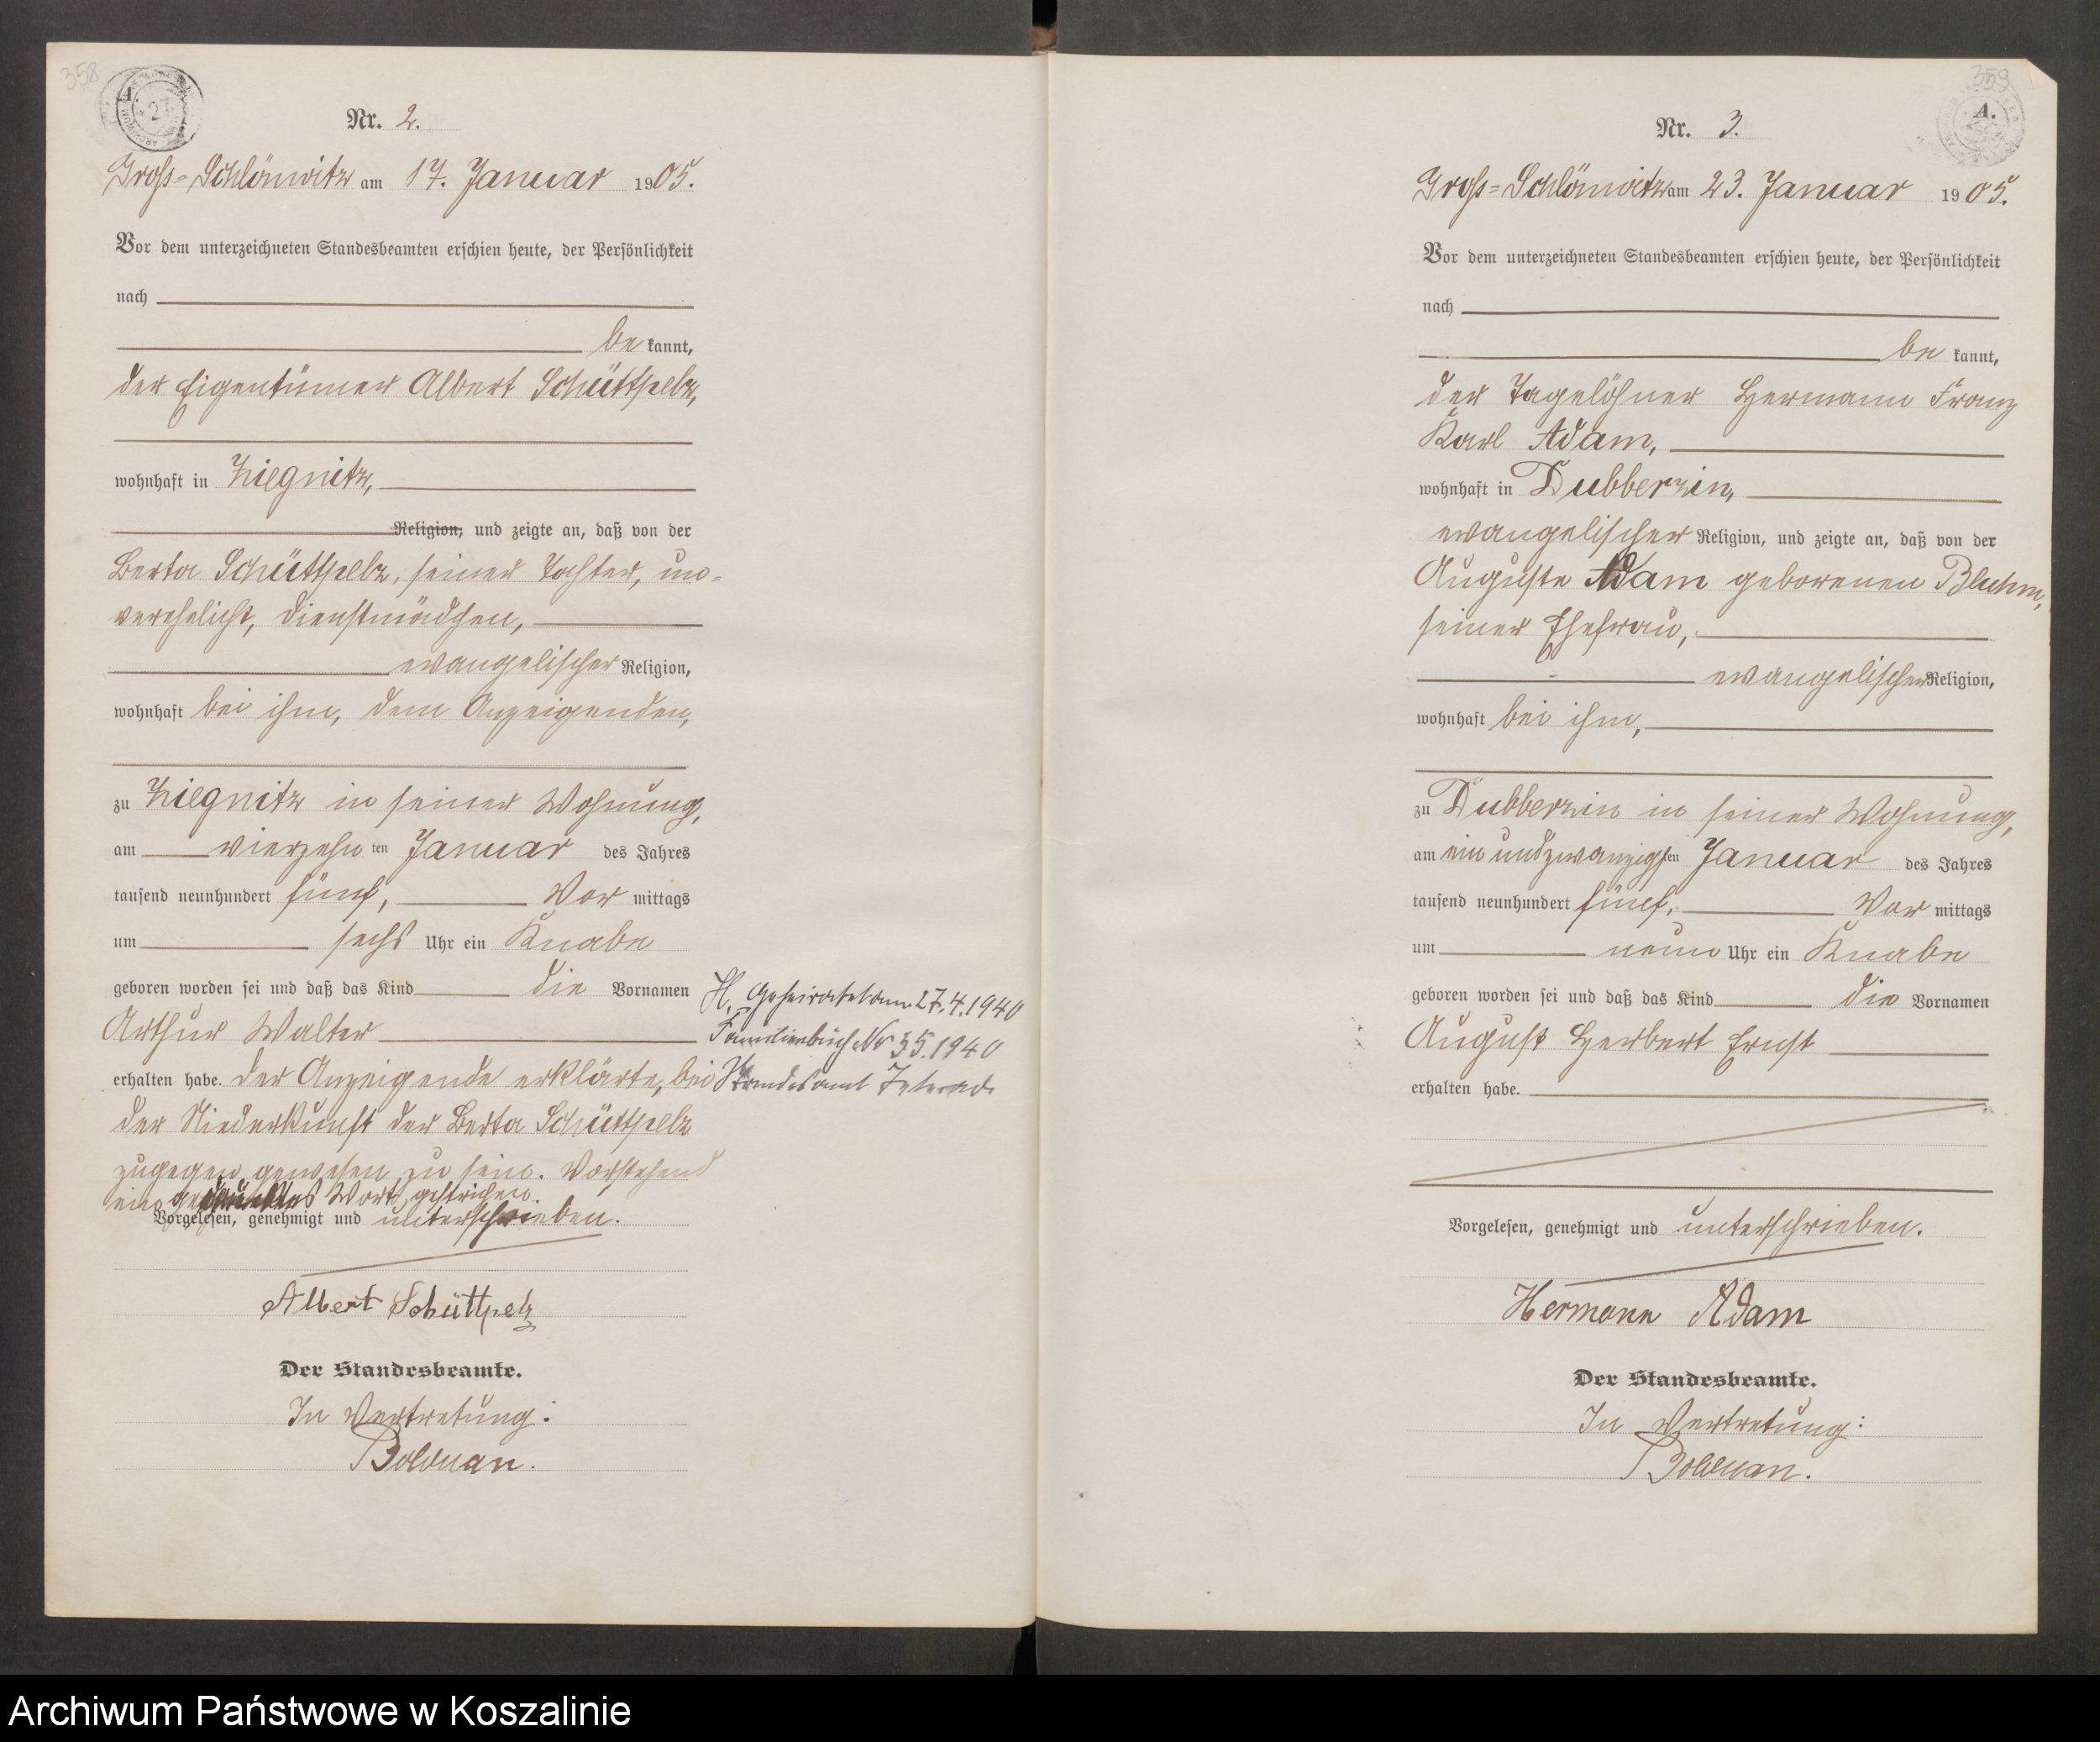 358
Nr. 2.
Groß-Schlönwitz am 17. Januar 1905.
Vor dem unterzeichneten Standesbeamten erschien heute, der Persönlichkeit
nach
be kannt,
der Eigentümer Albert Schüttpelz,
wohnhaft in Ziegnitz,
Religion, und zeigte an, daß von der
Berta Schüttpelz, seiner Tochter, un-
verehelicht, Dienstmädchen,
evangelischer Religion,
wohnhaft bei ihm, dem Anzeigenden,
zu Ziegnitz in seiner Wohnung,
am vierzehn ten Januar des Jahres
tausend neunhundert fünf, Vor mittags
um sechs Uhr ein Knabe
geboren worden sei und daß das Kind die Vornamen
Arthur Walter
erhalten habe. Der Anzeigende erklärte, bei
der Niederkunft der Berta Schüttpelz
zugegen gewesen zu sein. Vorstehend
ein gedrucktes Wort gestrichen.
Vorgelesen, genehmigt und unterschrieben.
Albert Schüttpelz
Der Standesbeamte.
In Vertretung:
Bolduan.
H. Geheiratet am 27.4.1940
Familienbuch Nr 35.1940
Standesamt
359
A.
Nr. 3.
Groß-Schlönwitz am 23. Januar 1905.
Vor dem unterzeichneten Standesbeamten erschien heute, der Persönlichkeit
nach
be kannt,
der Tagelöhner Hermann Franz
Karl Adam,
wohnhaft in Dubberzin,
evangelischer Religion, und zeigte an, daß von der
Auguste Adam geborenen Bluhm,
seiner Ehefrau,
evangelischer Religion,
wohnhaft bei ihm,
zu Dubberzin in seiner Wohnung,
am ein und zwanzigsten Januar des Jahres
tausend neunhundert fünf, Vor mittags
um neun Uhr ein Knabe
geboren worden sei und daß das Kind die Vornamen
August Herbert Ernst
erhalten habe.
Vorgelesen, genehmigt und unterschrieben.
Hermann Adam
Der Standesbeamte.
In Vertretung:
Bolduan.
Archiwum Państwowe w Koszalinie